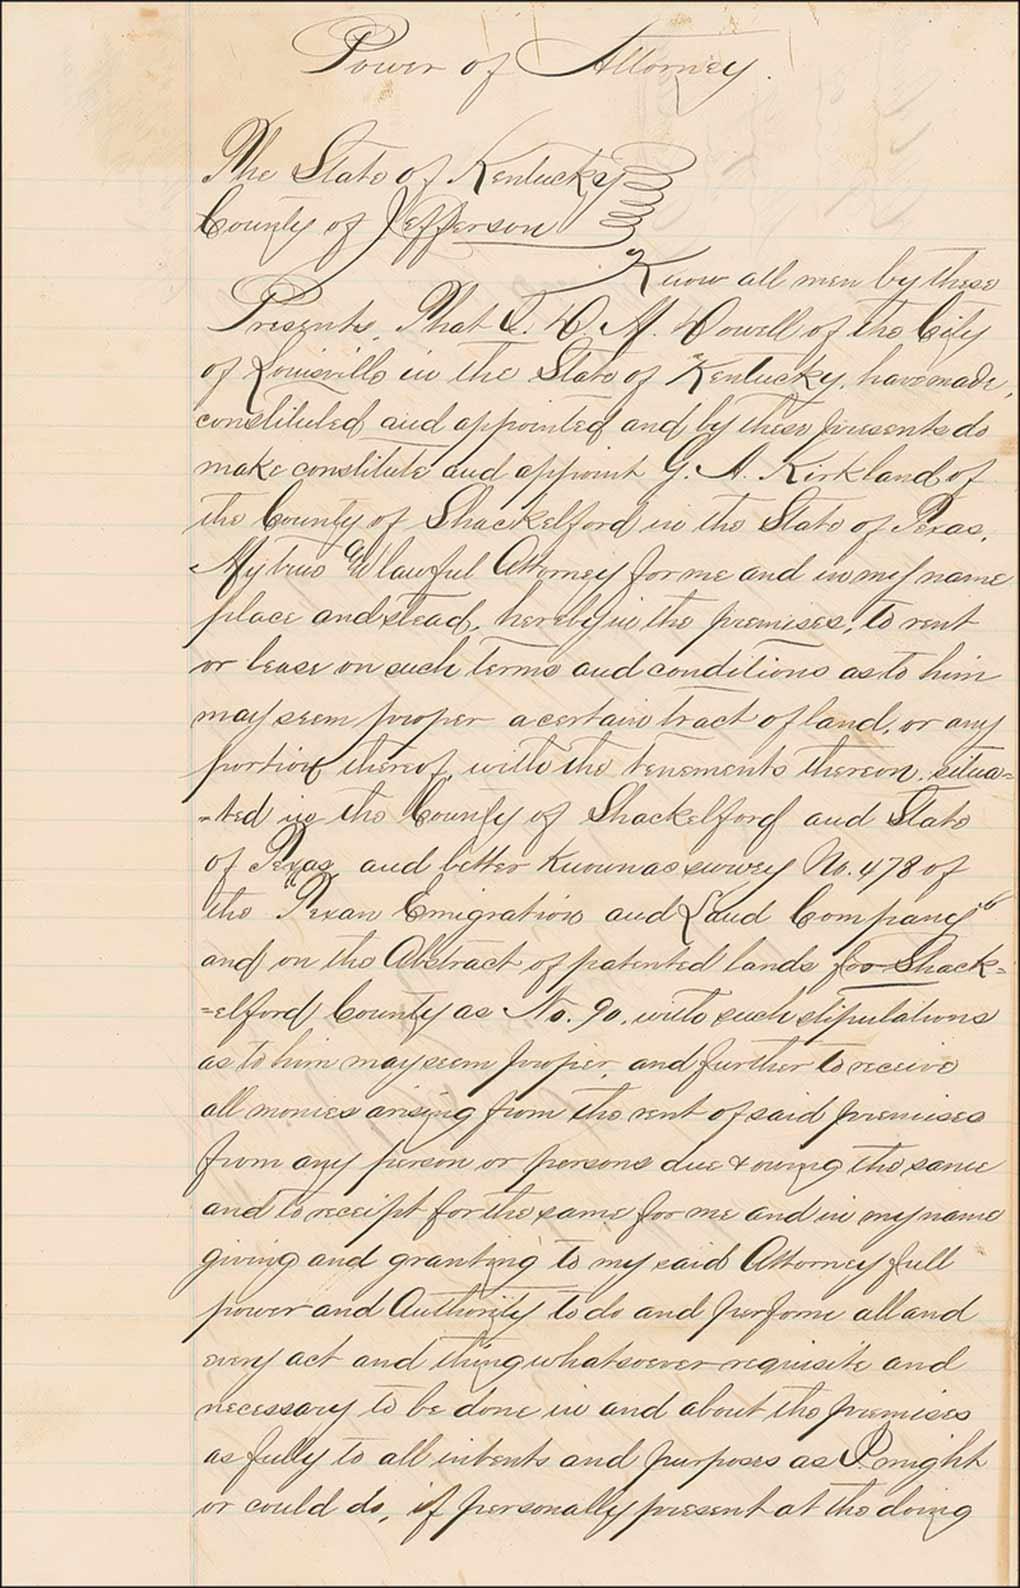 Power of Attorney.
The State of Kentucky
County of Jefferson
Know all men by these
Presents, That I. D. M. Dowell of the City
of Louisville in the State of Kentucky, have made,
constituted and appointed and by these presents do
make constitute and appoint G. A. Kirkland of
the County of Shackelford in the State of Texas,
My true and lawful Attorney for me and in my name
place and stead, hereby in the premises, to rent
or lease on such terms and conditions as to him
may seem proper a certain tract of land, or any
portion thereof, with the tenements thereon, situa=
=ted in the County of Shackelford and State
of Texas, and better known as survey No. 478 of
the "Texan Emigration and Land Company"
and on the Abstract of patented lands for Shack=
=elford County as No. 90, with such stipulations
as to him may seem proper, and further to receive
all monies arising from the rent of said premises
from any person or persons due & owing the same
and to receipt for the same for me and in my name
giving and granting to my said Attorney full
power and Authority to do and perform all and
every act and thing whatsoever requisite and
necessary to be done in and about the premises
as fully to all intents and purposes as I might
or could do, if personally present at the doing